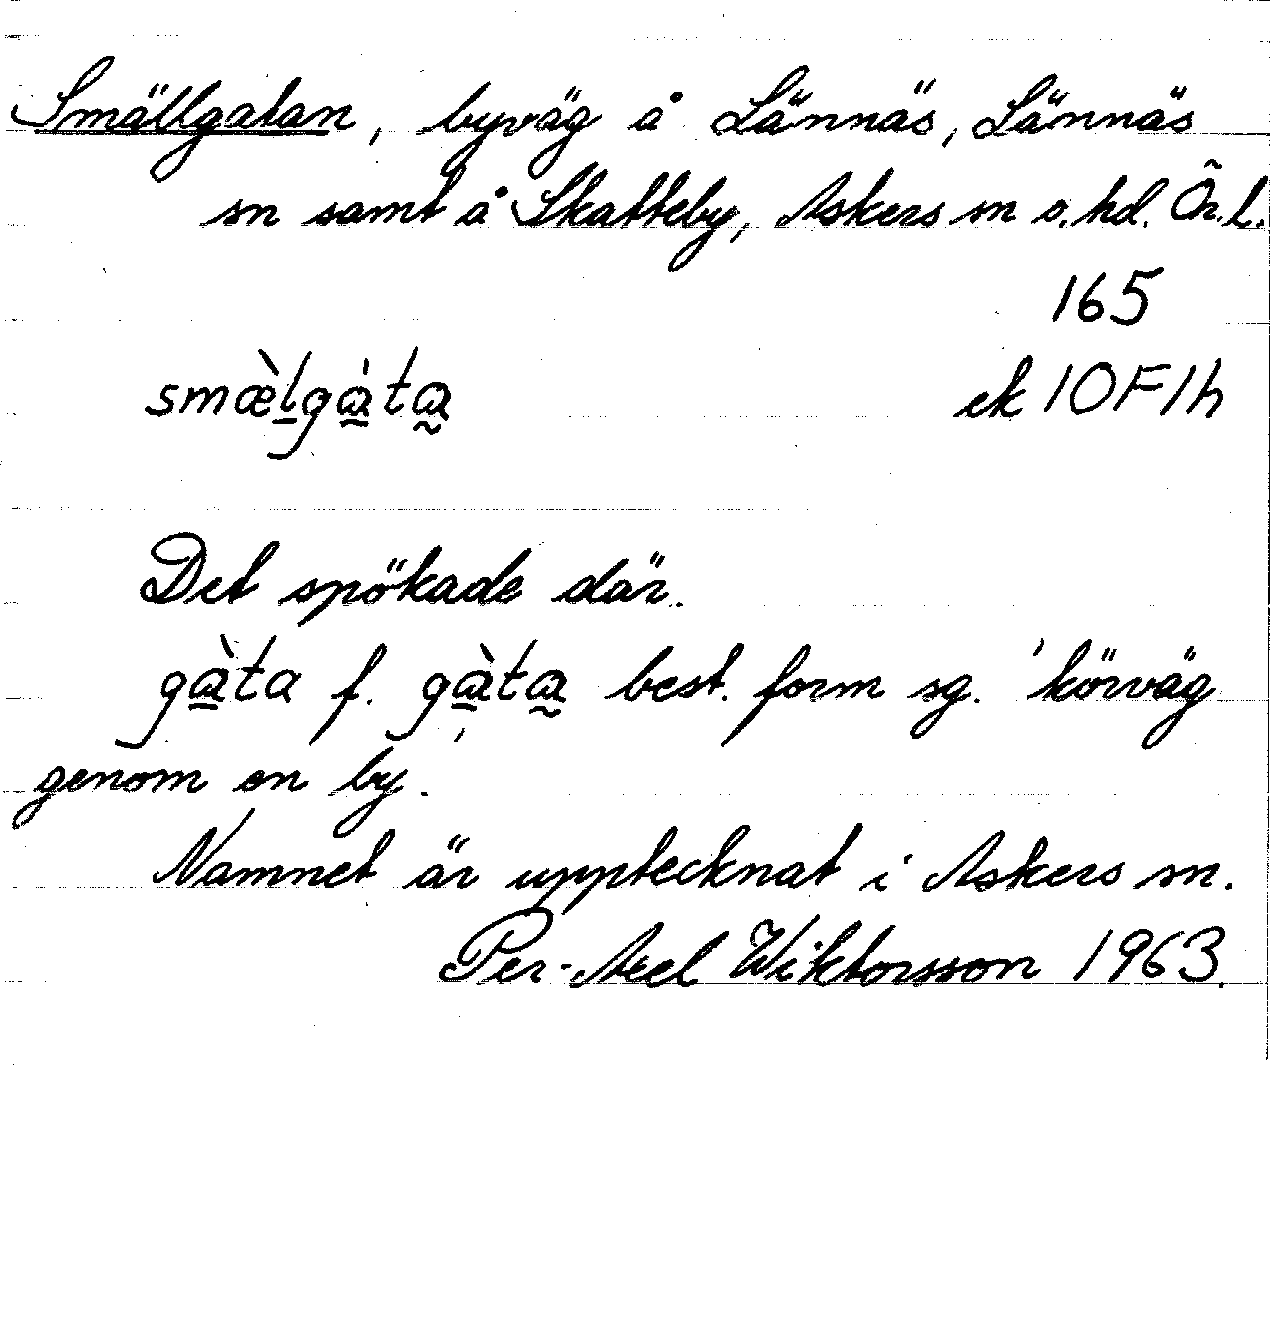 Smällgatan, byväg å Lännäs, Lännäs
sn samt å Skatteby, Askers sn o. hd. Ör.l.
165
smæ̀lgátа ek 10F1h
Det spökade där.
gàta f. gàta best. form sg. 'körväg
genom en by'.
Namnet är upptecknat i Askers sn.
Per-Axel Wiktorsson 1963.